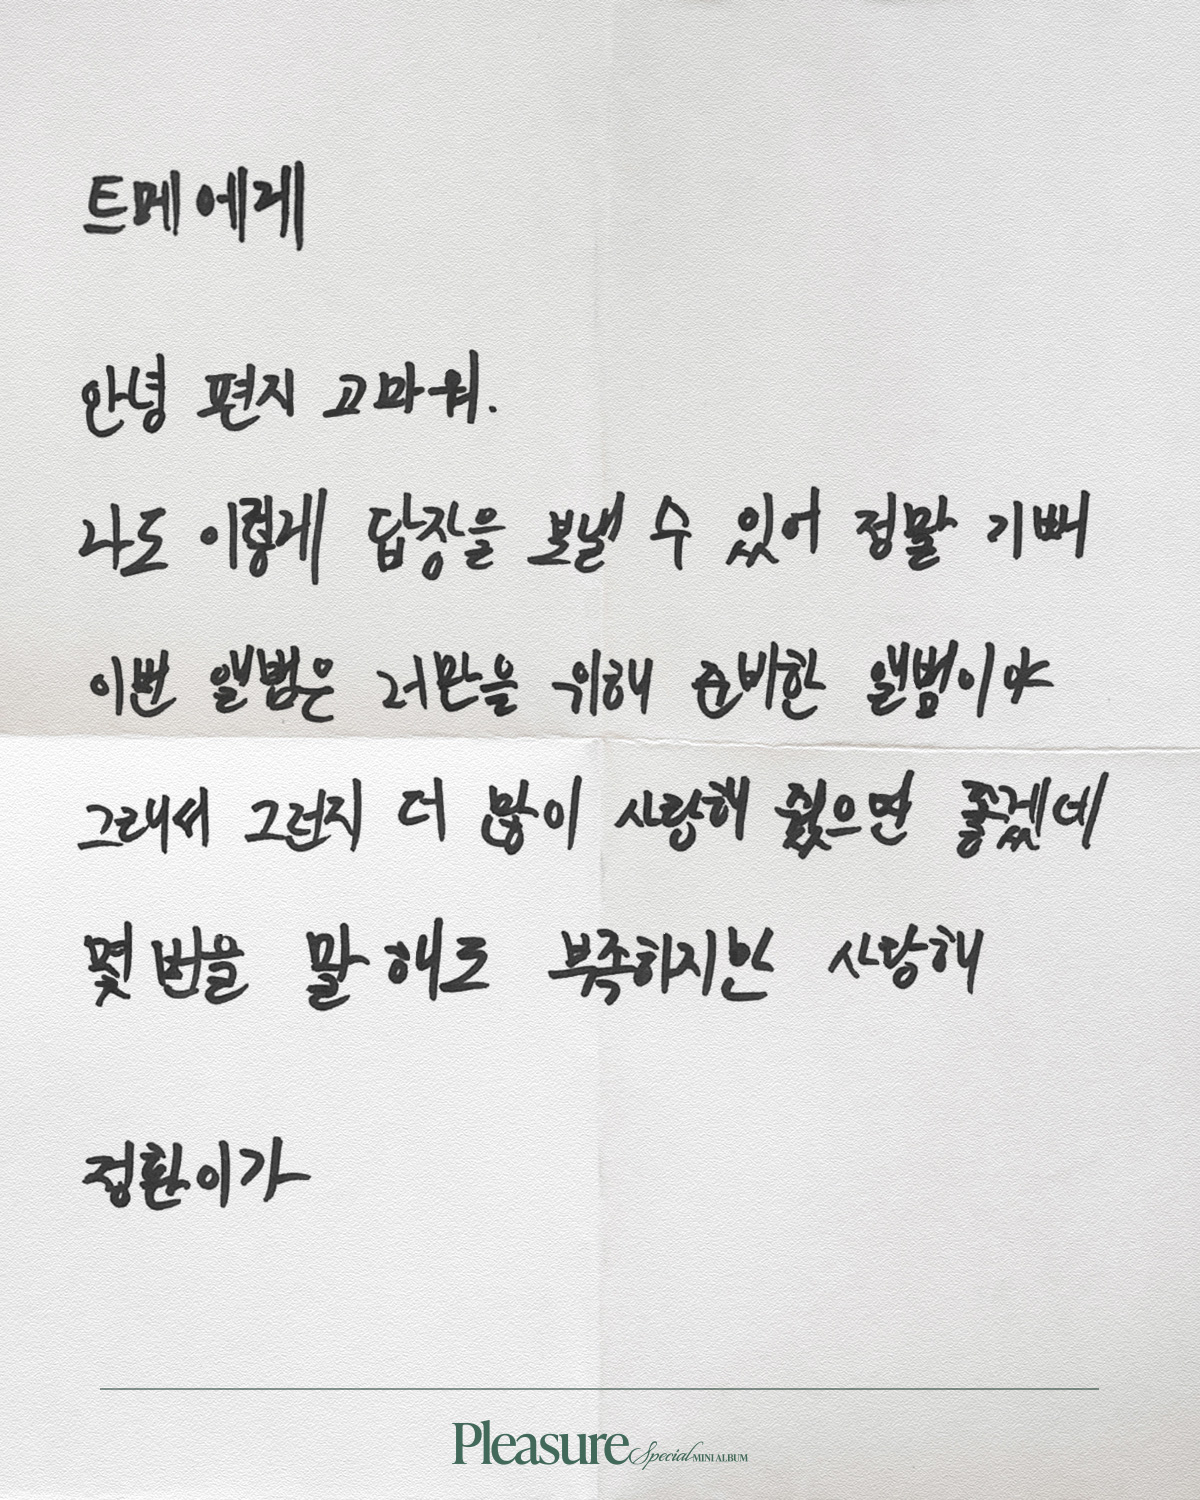 트메에게
안녕 편지 고마워.
나도 이렇게 답장을 보낼 수 있어 정말 기뻐
이번 앨범은 너만을 위해 준비한 앨범이야
그래서 그런지 더 많이 사랑해 줬으면 좋겠네
몇 번을 말해도 부족하지만 사랑해
정환이가
Pleasure Special MINI ALBUM